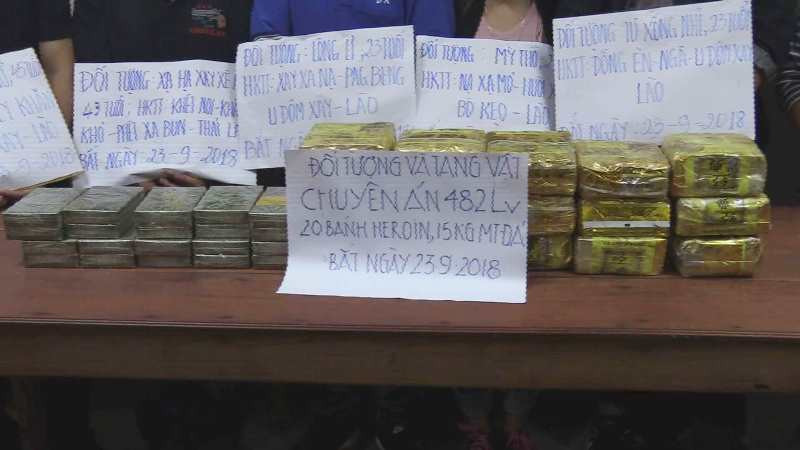 45 TUỔI
KHĂM
XAY-LÀO
-9-2018
ĐỐI TƯỢNG: XA HA XAY XÊ
43 TUỔI; HKTT: KHẾT NOI-KHA
KHO-PHẾT XA BUN-THÁI L
BẮT NGÀY-23-9-2018
ĐỐI TƯỢNG: LONG LÌ, 23 TUỔI
HKTT: XAY XA NA-PAG BENG
U ĐÔM XAY-LÀO
BẮT N
ĐỐI TƯỢNG: MỲ THO
HKTT: NA XA MO-HUỔI
BO KẸO-LÀO
BẮT
ĐỐI TƯỢNG TỦ XÔNG NHÈ, 23 TUỔI
HKTT-ĐÔNG ÈN-NGÀ-U ĐÔM XAY
LÀO
BẮT NGÀY: 23-9-2018
ĐỐI TƯỢNG VÀ TANG VẬT
CHUYÊN ÁN 482LV
20 BÁNH HEROIN, 15 KG MT-ĐÁ
BẮT NGÀY 23.9.2018